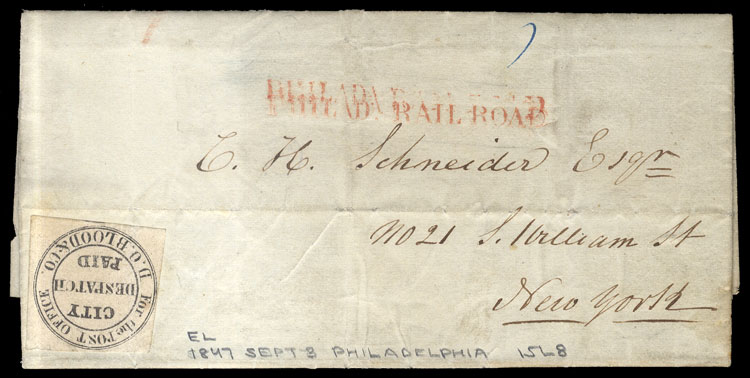 PHILADA RAIL ROAD
PHILADA RAIL ROAD
C. H. Schneider Esqr
No 21 S. William St
New York
D.O. BLOOD & CO
For the POST OFFICE
CITY
DESPATCH
PAID
EL
1847 SEPT 3 PHILADELPHIA 15L8